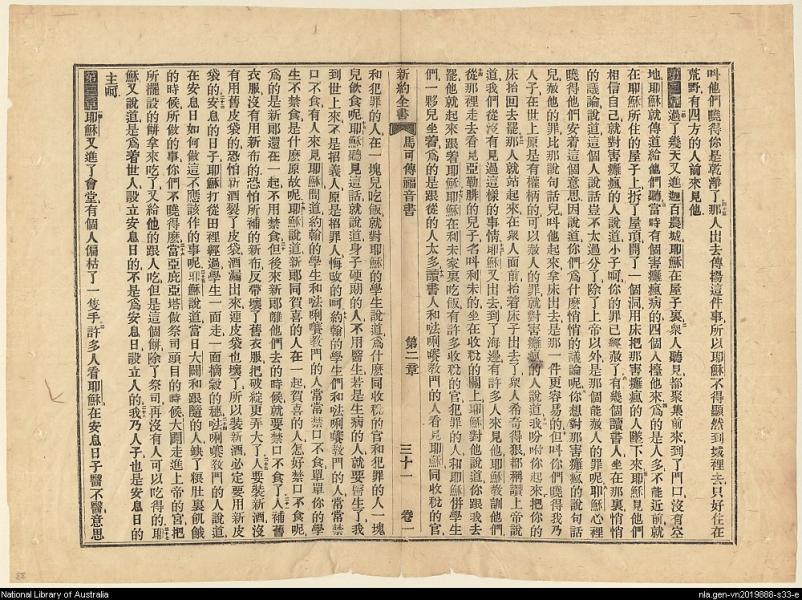 叫他們曉得你是乾淨了那人出去傳揚這件事所以耶穌不得顯然到城裡去只好住在
荒野有四方的人前來見他
第二章過了幾天又進迦百農城耶穌在屋子裏衆人聽見都聚集前來到了門口沒有空
地耶穌就傳道給他們聽當時有個害癱瘋病的四個人擡他來爲的是人多不能近前就
在耶穌所住的屋子上拆了屋頂開了一個洞用床把那害癱瘋的人墜下來耶穌見他們
相信自己就對害癱瘋的人說道小子呵你的罪已經赦了有幾個讀書人坐在那裏悄悄
的議論說道這個人說話豈不太過分了除了上帝以外是那個能赦人的罪呢耶穌心裡
曉得他們安着這個意思因說道你們爲什麼悄悄的議論呢你想對那害癱瘋的說句話
兒赦他的罪比那說句話兒叫他起來拿床出去是那一件更容易的但叫你們曉得我乃
人子在世上原是有權柄的可以赦人的罪就對害癱瘋的人說道我吩咐你起來把你的
床抬回去罷那人就站起來在衆人面前抬着床子出去了衆人希奇得狠都稱讚上帝說
道我們從沒有見過這樣的事情耶穌又出去到了海邊有許多人來見他耶穌敎訓他們
從那裡走去看見亞勒腓的兒子名叫利未的坐在收稅的關上耶穌對他說道你跟我去
罷他就起來跟着耶穌耶穌在利未家裏吃飯有許多收稅的官犯罪的人和耶穌併學生
們一夥兒坐着爲的是跟從的人太多讀書人和𠵽唎嚷敎門的人看見耶穌同收稅的官
新約全書
馬可傳福音書
第二章
三十一
卷一
和犯罪的人在一塊兒吃飯就對耶穌的學生說道爲什麼同收稅的官和犯罪的人一塊
兒飲食呢耶穌聽見這話就說道身子硬朗的人不用醫生若是生病的人就要醫生了我
到世上來不是招義人原是招罪人悔改的呵約翰的學生們和𠵽唎嚷敎門的人常常禁
口不食有人來見耶穌問道約翰的學生和𠵽唎嚷敎門的人常常禁口不食單單你的學
生不禁食是什麼原故呢耶穌說道新郎同賀喜的人在一起賀喜的人怎好禁口不食呢
爲的是新郎還在一起不用禁食但後來新郎離他們去的時候就要禁口不食了人補舊
衣服沒有用新布的恐怕所補的新布反帶壞了舊衣服把破綻更弄大了人要裝新酒沒
有用舊皮袋的恐怕新酒裂了皮袋酒漏出來連皮袋也壞了所以裝新酒必定要用新皮
袋的安息的日子耶穌打從田裡經過學生一面走一面摘穀的穗𠵽唎嚷敎門的人說道
在安息日如何做這不應該作的事呢耶穌說道當日大闢和跟隨的人缺了糧肚裏飢餓
的時候所做的事你們不曉得麽當亞庇亞塔做祭司頭目的時候大闢走進上帝的宮把
所擺設的餅拿來吃了又給他的跟人吃但是這個餅除了祭司再沒有人可以吃得的耶
穌又說道是爲着世人設立安息日的不是爲安息日設立人的我乃人子也是安息日的
主呵
第三章耶穌又進了會堂有個人偏枯了一隻手許多人看耶穌在安息日子醫不醫意思
National Library of Australia
nla.gen-vn2019888-s33-e